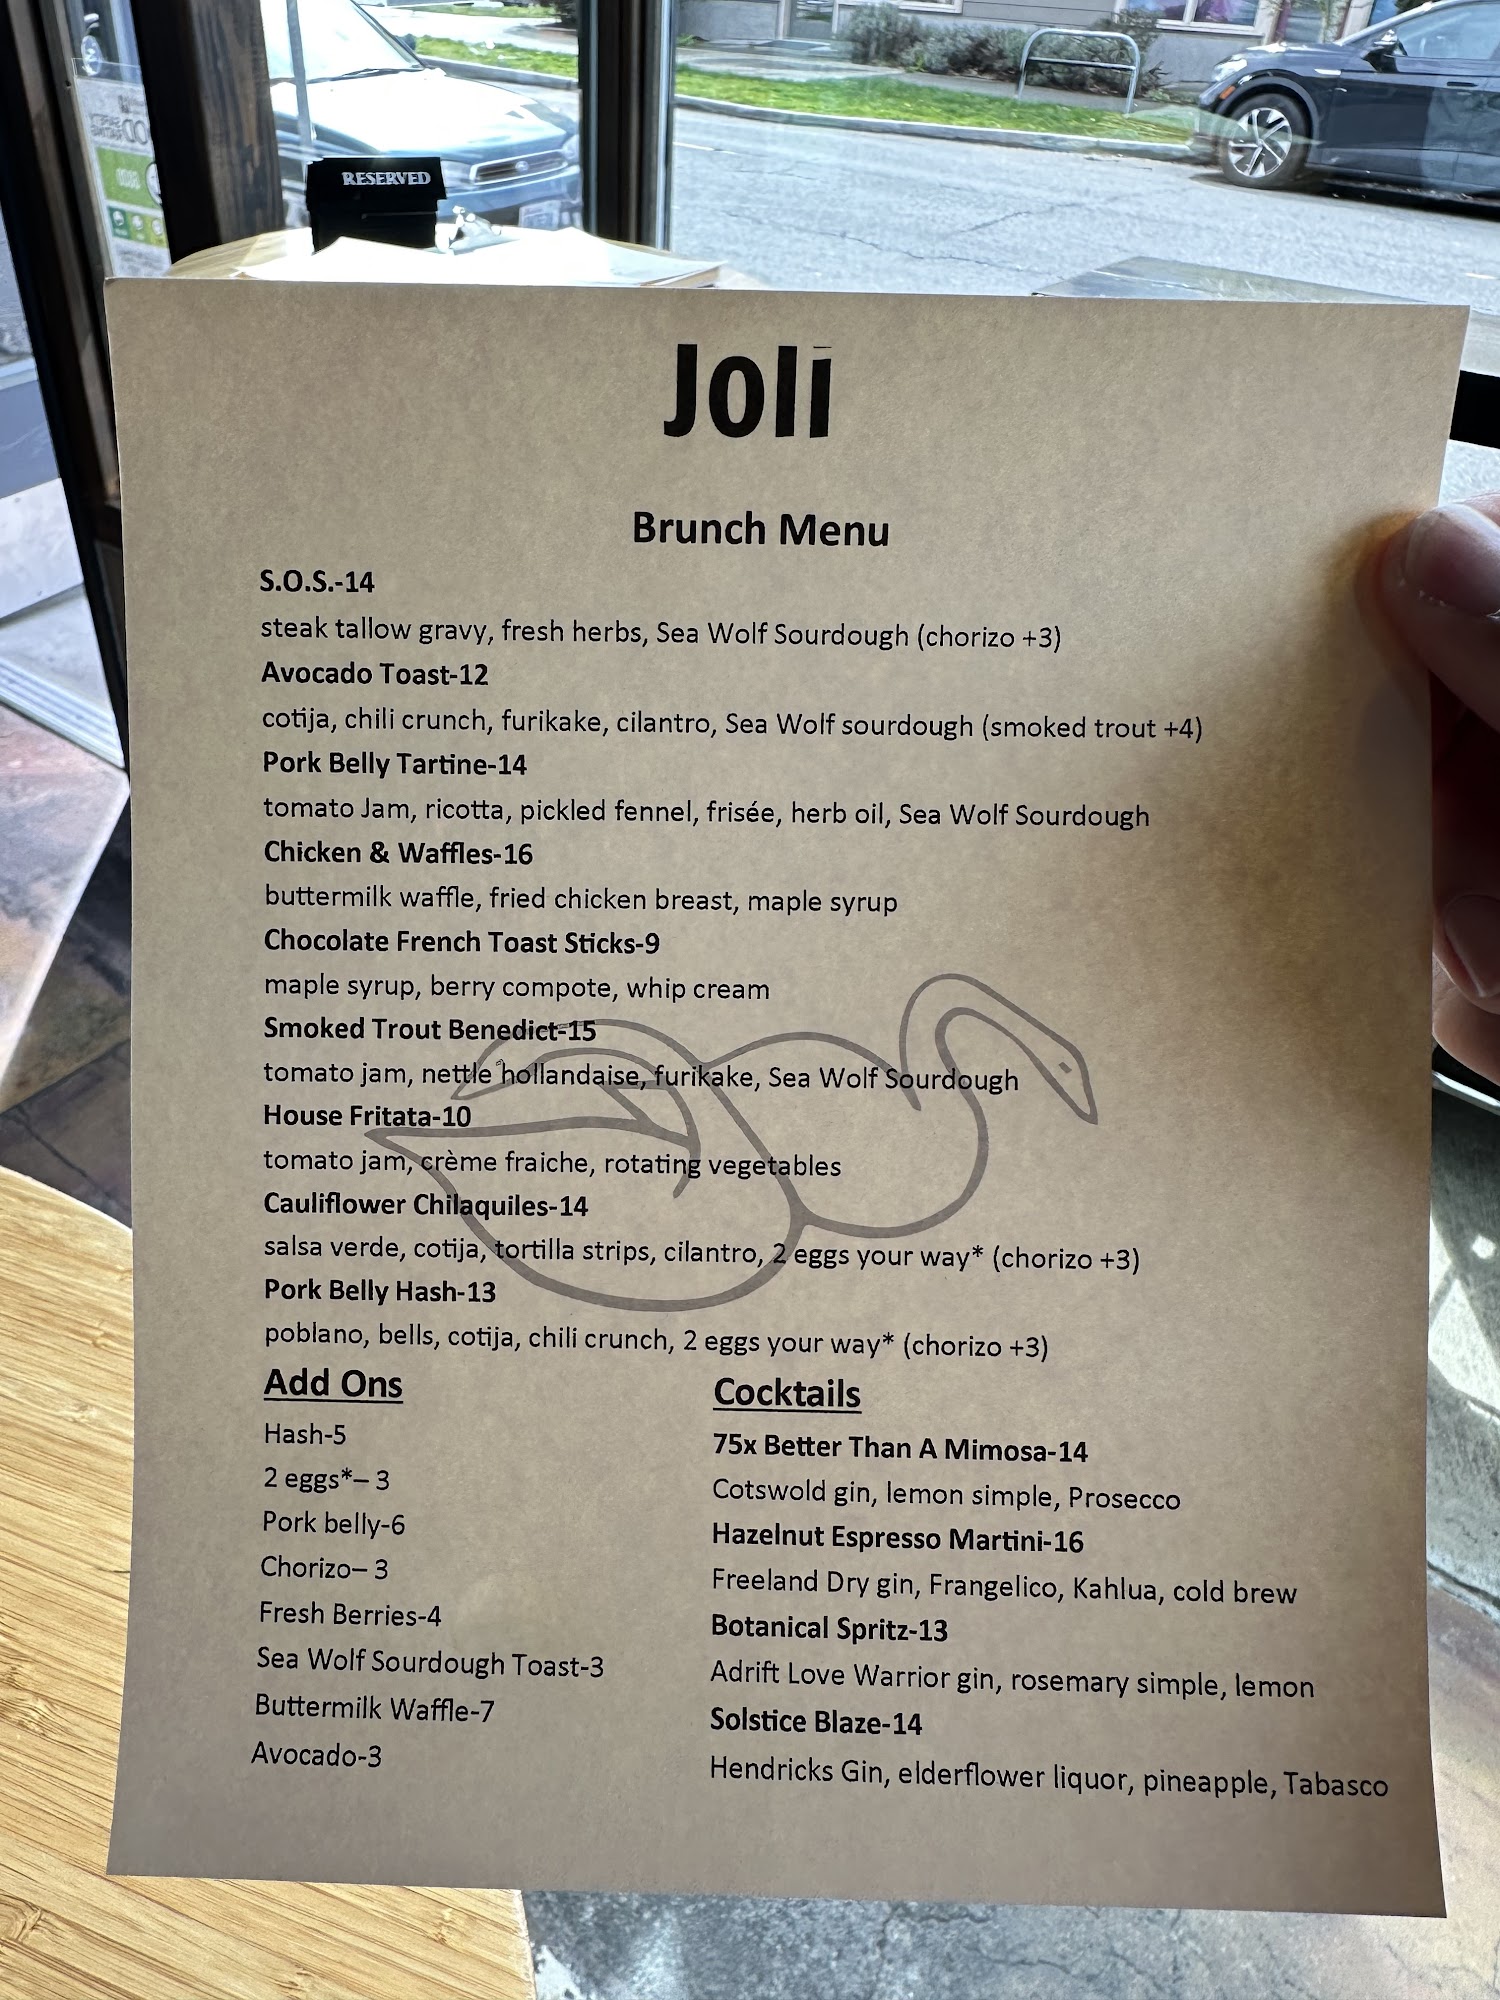 RESERVED
Joli
Brunch Menu
S.O.S.-14
steak tallow gravy, fresh herbs, Sea Wolf Sourdough (chorizo +3)
Avocado Toast-12
cotija, chili crunch, furikake, cilantro, Sea Wolf sourdough (smoked trout +4)
Pork Belly Tartine-14
tomato Jam, ricotta, pickled fennel, frisée, herb oil, Sea Wolf Sourdough
Chicken & Waffles-16
buttermilk waffle, fried chicken breast, maple syrup
Chocolate French Toast Sticks-9
maple syrup, berry compote, whip cream
Smoked Trout Benedict-15
tomato jam, nettle hollandaise, furikake, Sea Wolf Sourdough
House Fritata-10
tomato jam, crème fraiche, rotating vegetables
Cauliflower Chilaquiles-14
salsa verde, cotija, tortilla strips, cilantro, 2 eggs your way* (chorizo +3)
Pork Belly Hash-13
poblano, bells, cotija, chili crunch, 2 eggs your way* (chorizo +3)
Add Ons
Hash-5
2 eggs*– 3
Pork belly-6
Chorizo– 3
Fresh Berries-4
Sea Wolf Sourdough Toast-3
Buttermilk Waffle-7
Avocado-3
Cocktails
75x Better Than A Mimosa-14
Cotswold gin, lemon simple, Prosecco
Hazelnut Espresso Martini-16
Freeland Dry gin, Frangelico, Kahlua, cold brew
Botanical Spritz-13
Adrift Love Warrior gin, rosemary simple, lemon
Solstice Blaze-14
Hendricks Gin, elderflower liquor, pineapple, Tabasco